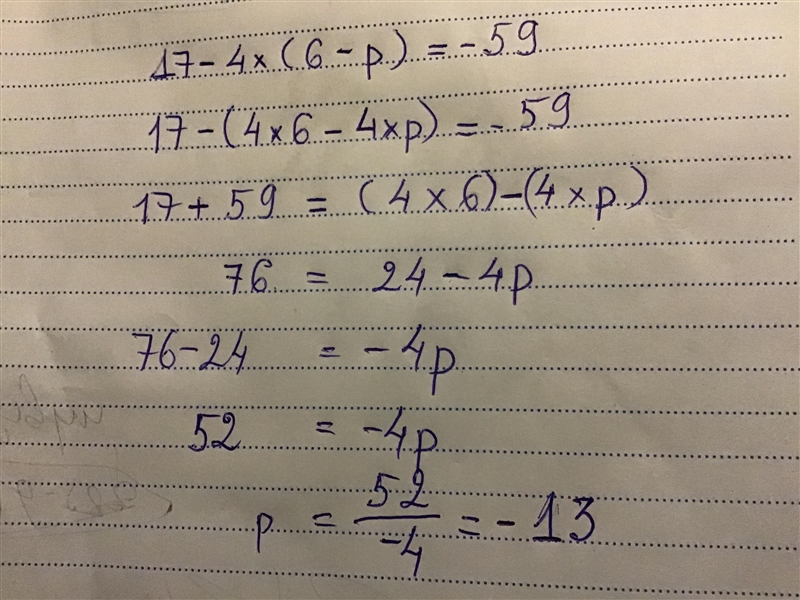 17 - 4 × (6 - p) = - 59
17 - (4 × 6 - 4 × p) = - 59
17 + 59 = (4 × 6) - (4 × p)
76 = 24 - 4p
76 - 24 = - 4p
52 = - 4p
p = 52/-4 = - 13